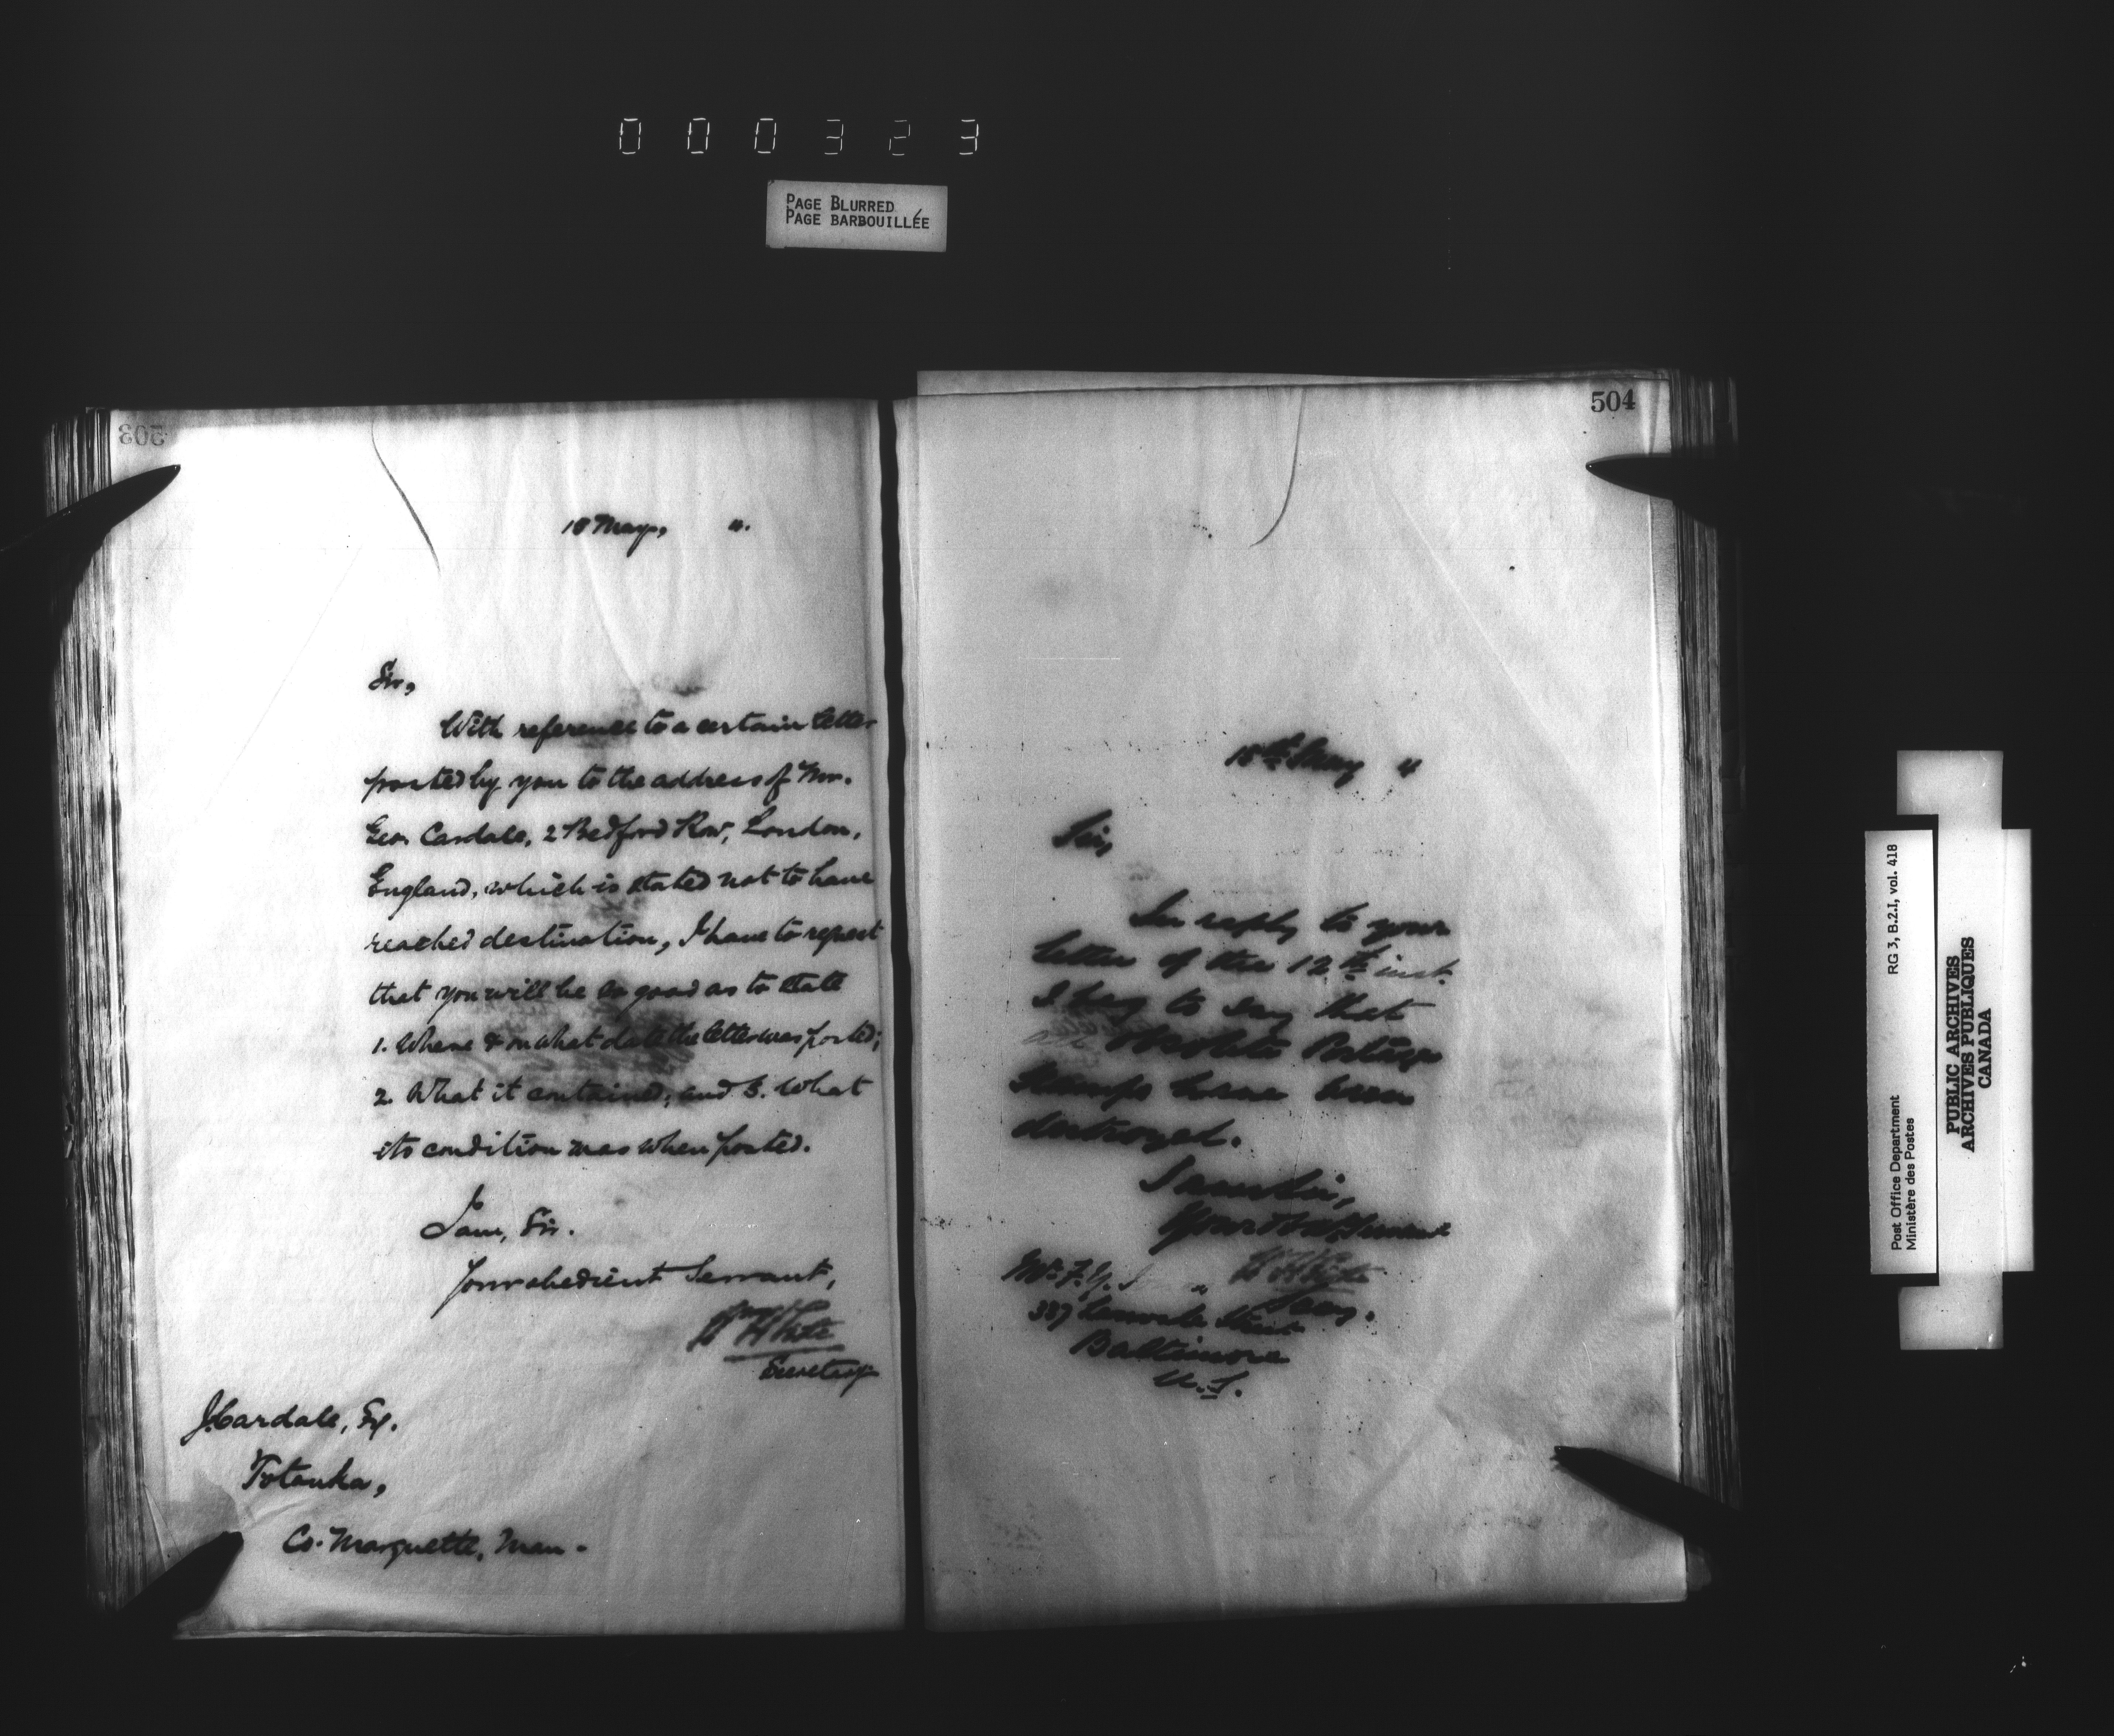 000323
PAGE BLURRED
PAGE BARBOUILLÉE
503
18 May, 4.
Sir,
With reference to a certain letter
posted by you to the address of Mr.
Geo. Cardale, 2 Bedford Row, London,
England, which is stated not to have
reached destination, I have to request
that you will be so good as to state
1. Where & on what date the letter was posted;
2. What it contained; and 3. What
its condition was when posted.
I am, Sir.
Your obedient Servant,
Wm White
Secretary
J. Cardale, Esq.
Totanka,
Co. Marquette, Man.
504
15th May 4
Sir,
In reply to your
letter of the 12th inst.
I beg to say that
all Obsolete Postage
Stamps have been
destroyed.
I am Sir,
Your Obdt Servant
W White
Secy.
Mr. F. Y.
337 Street
Baltimore
U.S.
Post Office Department RG 3, B.2.I, vol. 418
Ministère des Postes
PUBLIC ARCHIVES
ARCHIVES PUBLIQUES
CANADA